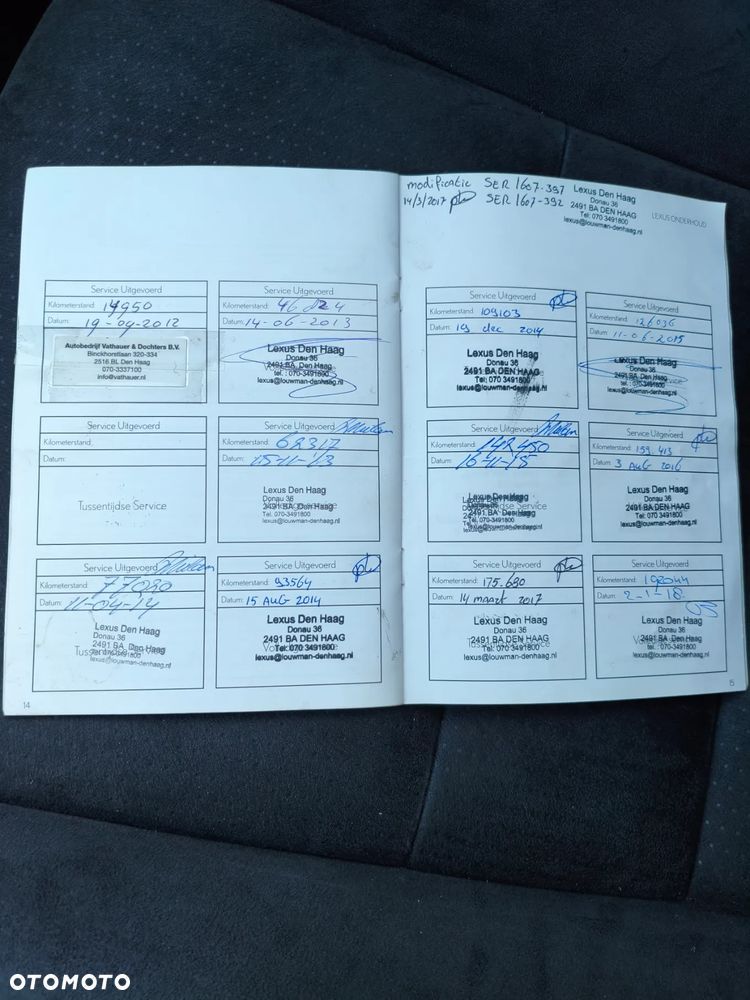 modificatie SER 1607-397
14/3/2017 SER 1607-392
Lexus Den Haag
Donau 36
2491 BA DEN HAAG
Tel: 070 3491800
lexus@louwman-denhaag.nl
LEXUS ONDERHOUD
Service Uitgevoerd
Kilometerstand: 14950
Datum: 19-09-2012
Autobedrijf Vathauer & Dochters B.V.
Binckhorstlaan 320-334
2516 BL Den Haag
070-3337100
info@vathauer.nl
Service Uitgevoerd
Kilometerstand:
Datum: 14-06-2013
Lexus Den Haag
Donau 36
2491 BA Den Haag
tel.: 070-3491800
lexus@louwman-denhaag.nl
Service Uitgevoerd
Kilometerstand:
Datum:
Tussentijdse Service
Service Uitgevoerd
Kilometerstand: 62317
Datum: 15-11-13
Lexus Den Haag
Donau 36
2491 BA DEN HAAG
Tel: 070-3491800
lexus@louwman-denhaag.nl
Service Uitgevoerd
Kilometerstand: 77030
Datum: 11-04-14
Lexus Den Haag
Donau 36
2491 BA DEN HAAG
lexus@louwman-denhaag.nl
Service Uitgevoerd
Kilometerstand: 93564
Datum: 15 AUG 2014
Lexus Den Haag
Donau 36
2491 BA DEN HAAG
Tel: 070 3491800
lexus@louwman-denhaag.nl
14
Service Uitgevoerd
Kilometerstand: 109103
Datum: 19 dec 2014
Lexus Den Haag
Donau 36
2491 BA DEN HAAG
Tel: 070 3491800
lexus@louwman-denhaag.nl
Service Uitgevoerd
Kilometerstand: 126036
Datum: 11-06-2015
Lexus Den Haag
Donau 36
2491 BA DEN HAAG
Tel: 070 3491800
lexus@louwman-denhaag.nl
Service Uitgevoerd
Kilometerstand: 142450
Datum: 16-11-15
Lexus Den Haag
Service Uitgevoerd
Kilometerstand: 159.413
Datum: 3 AUG 2016
Lexus Den Haag
Donau 36
2491 BA DEN HAAG
Tel: 070 3491800
lexus@louwman-denhaag.nl
Service Uitgevoerd
Kilometerstand: 175.680
Datum: 14 maart 2017
Lexus Den Haag
Donau 36
2491 BA DEN HAAG
Tel: 070 3491800
lexus@louwman-denhaag.nl
Service Uitgevoerd
Kilometerstand: 192044
Datum: 2-1-18
Lexus Den Haag
Donau 36
2491 BA DEN HAAG
Tel: 070 3491800
lexus@louwman-denhaag.nl
OTOMOTO